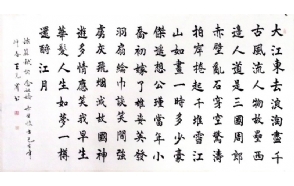 大江東去浪淘盡千
古風流人物故壘西
邊人道是三國周郎
赤壁亂石穿空驚濤
拍岸捲起千堆雪江
山如畫一時多少豪
傑遙想公瑾當年小
喬初嫁了雄姿英發
羽扇綸巾談笑間強
虜灰飛煙滅故國神
遊多情應笑我早生
華髮人生如夢一樽
還酹江月
蘇軾詞念奴嬌